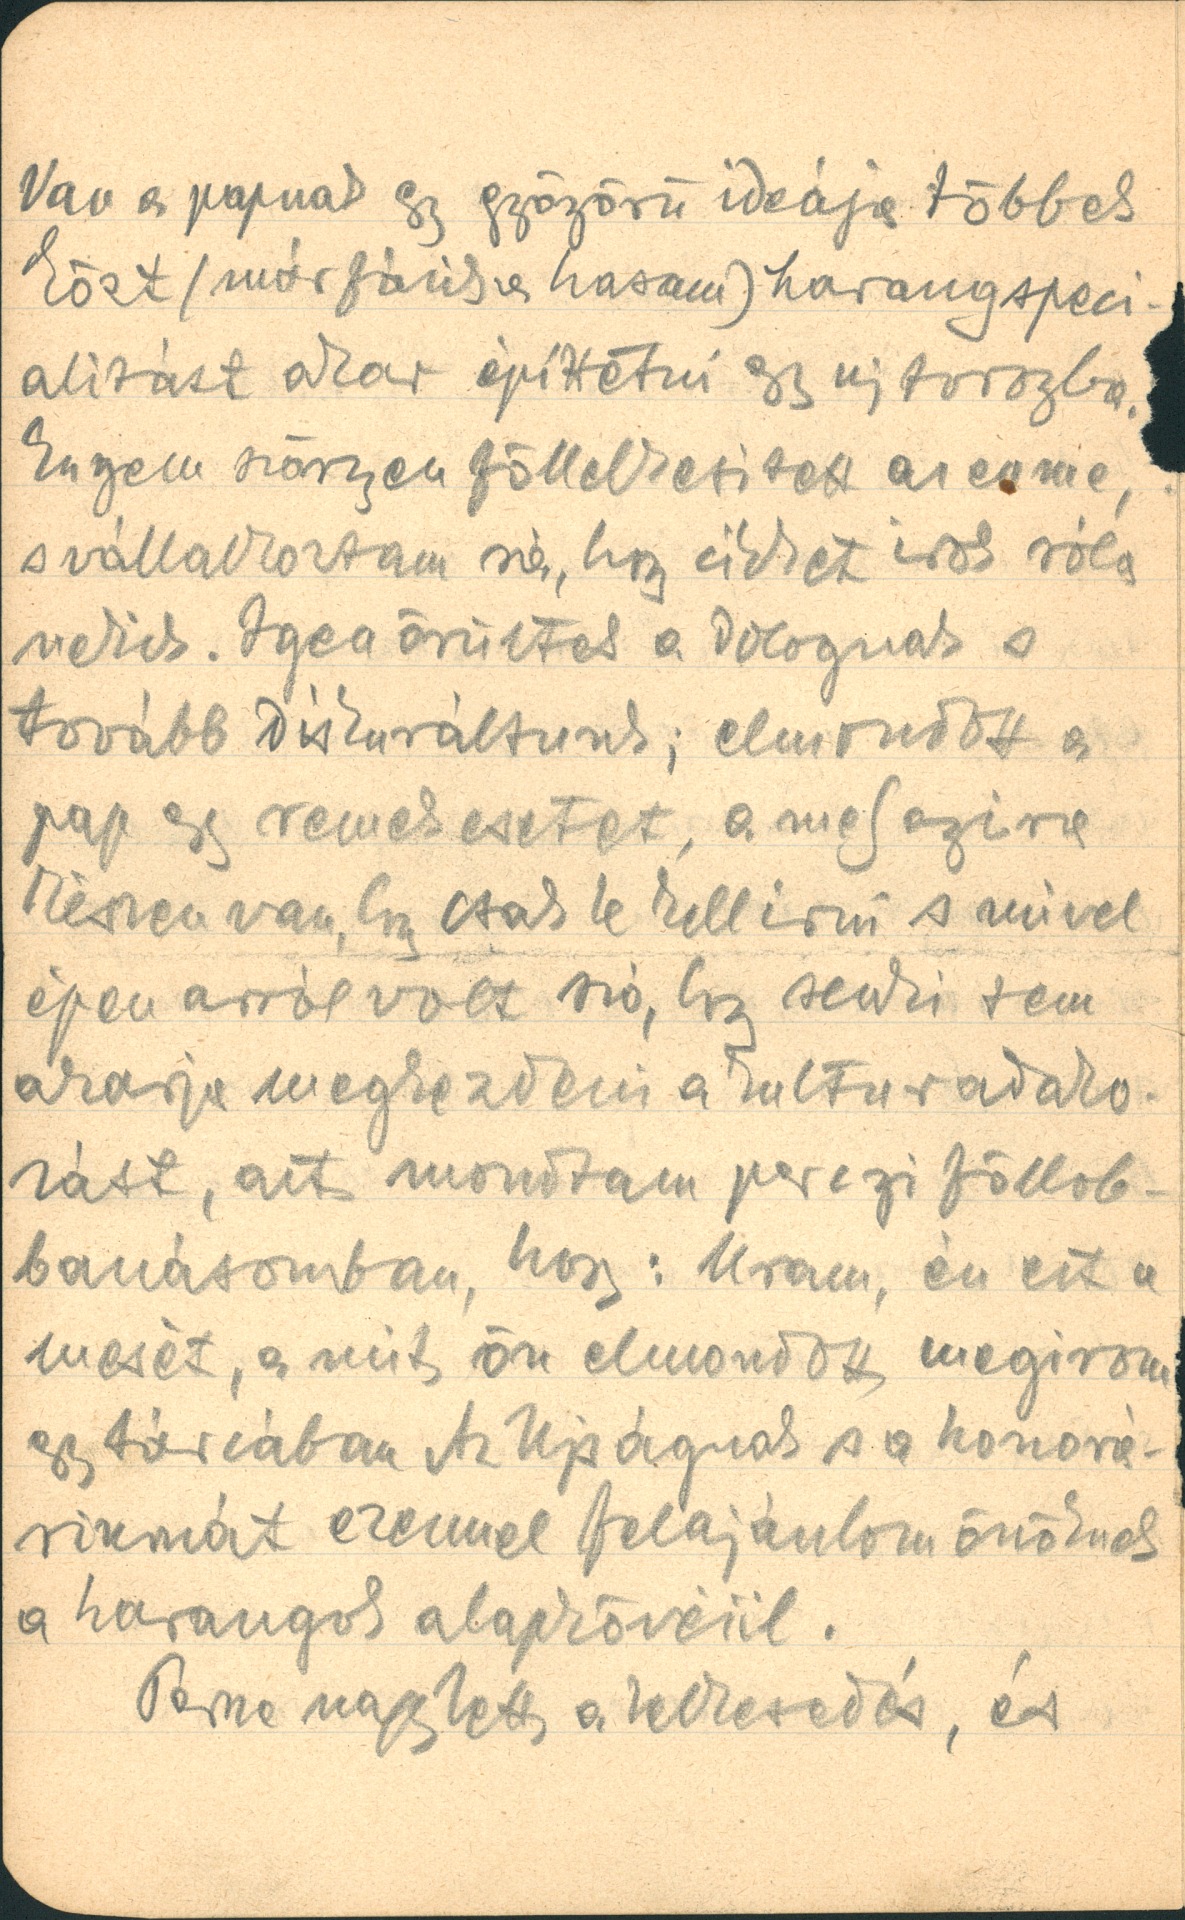 Van a papnak egy gyönyörü ideája többek
közt (már fáink a hasam) harangspeci-
alitást akar épittetni egy uj toronyba.
Engem szörnyen föllelkesitett az eszme,
s vállalkoztam rá, hogy cikket irok róla
nekik. Igen örültek a dolognak s
tovább diskuráltunk; elmondott a
pap egy remek esetet, a mely annyira
készen van, hogy csak le kell irni s mivel
épen arról volt szó, hogy senki sem
akarja megkezdeni a kulturadako-
zást, azt mondtam perczi föllob-
banásomban, hogy: Uram, én ezt a
mesét, a mit ön elmondott, megirom
egy tárcában Az Ujságnak s a honorá-
riumát ezennel felajánlom önöknek
a harangok alapkövéül.
Persze nagy lett a lelkesedés, és